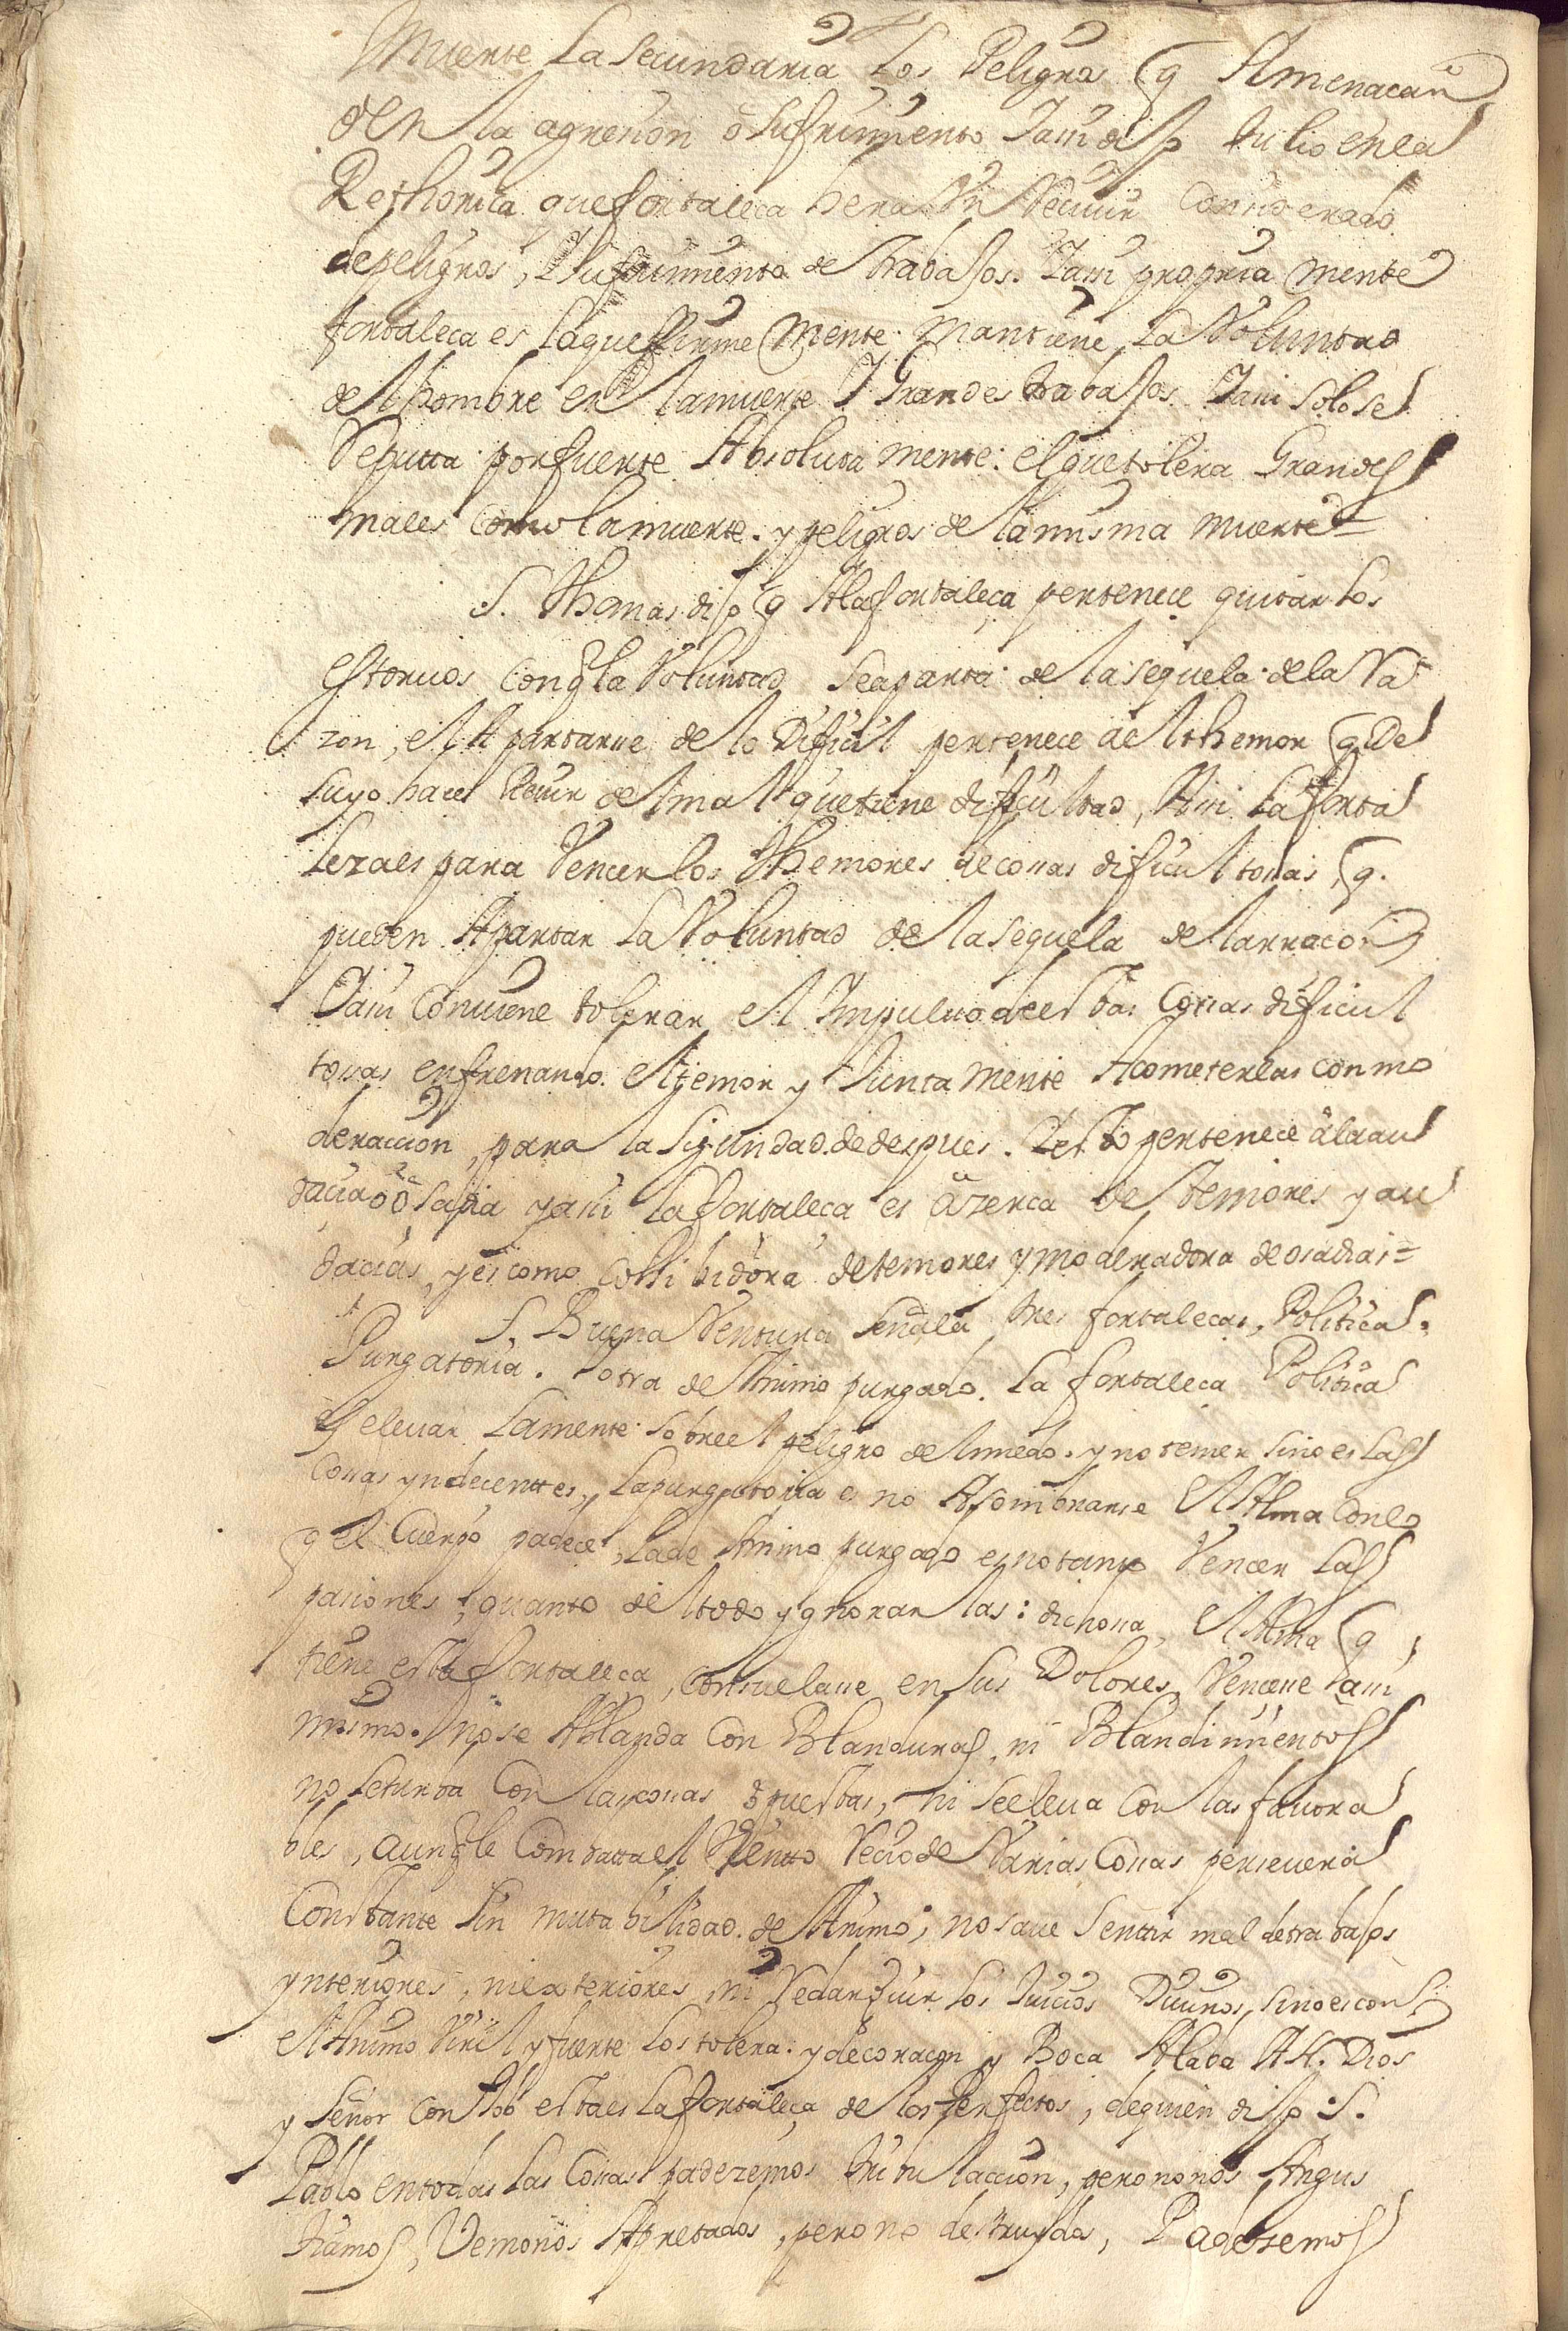 Muerte la secundaria los Peligros q Amenacan
en la agresion o sufrimiento Jassi dijo tulio en la
Rethorica que fortaleca hera Un Recivir Considerado
de peligros, y sufrimiento de trabajos. Jassi propria mente
fortaleca es la que ffirme mente mantiene la Voluntad
del hombre en la muerte y Grandes trabajos Jassi solo se
Reputta por fuerte Absoluta mente: el que tolera Grandes
males como la muerte. y peligros de la misma muerte =
S. Thomas dijo q A la fortaleça pertenece quitar los
estorvos con q la Voluntad se aparta de la sequela de la Ra
zon, el Apartarse de lo Dificil pertenece ael themor q De
suyo hace Recivir del mal que tiene dificultad, Assi la forta
leza es para Vencer los themores de cossas dificultossas, q.
pueden Apartar la Voluntad de la sequela de la rracon
Jassi Conviene tolerar el Impulsso de estas Cossas dificul
tossas enfrenando el temor y Junta mente Acometerlas con mo
deraccion, para la siguridad de despues. Yesto pertenece a la au
dacia o osadia y assi la fortaleca es açerca de temores y au
dacias, y es como cohibidora de temores y moderadora de osadias =
S. Buena Ventura señala tres fortalecas, Politica.
Purgatoria. Y otra de Animo purgado. La fortaleca Politica
es elevar la mente sobre el peligro del miedo. y no temer sino es las
Cossas yndecenttes, la purgatoria es no Asombrarse el Alma con lo
q el Cuerpo padece, la de Animo purgado es no tanto Vencer las
pasiones, quanto del todo ygnorarlas: dichossa, el Alma q
tiene esta fortaleca, consuelasse en sus Dolores, Vencesse assi
mismo. no se Ablanda con Blanduras, ni Blandimientos
no se turba con las cossas opuestas, ni se eleva con las favora
bles, aunq le Combatta el Viento Recio de Varias Cossas persevera
Constante sin mutabilidad de Animo; no save senttir mal de trabajos
ynteriores, ni exteriores, ni Redarguir los Juicios Divinos, sino es con
el Animo Viril y fuerte los tolera: y de coracon y Boca Alaba Al. Dios
y señor con Job esta es la fortaleça de los Perfectos, de quien dijo S.
Pablo en todas las Cossas padezemos tribulaccion, pero no nos Angus
tiamos, Vemonos Apretados, pero no destruydos, Padesemos